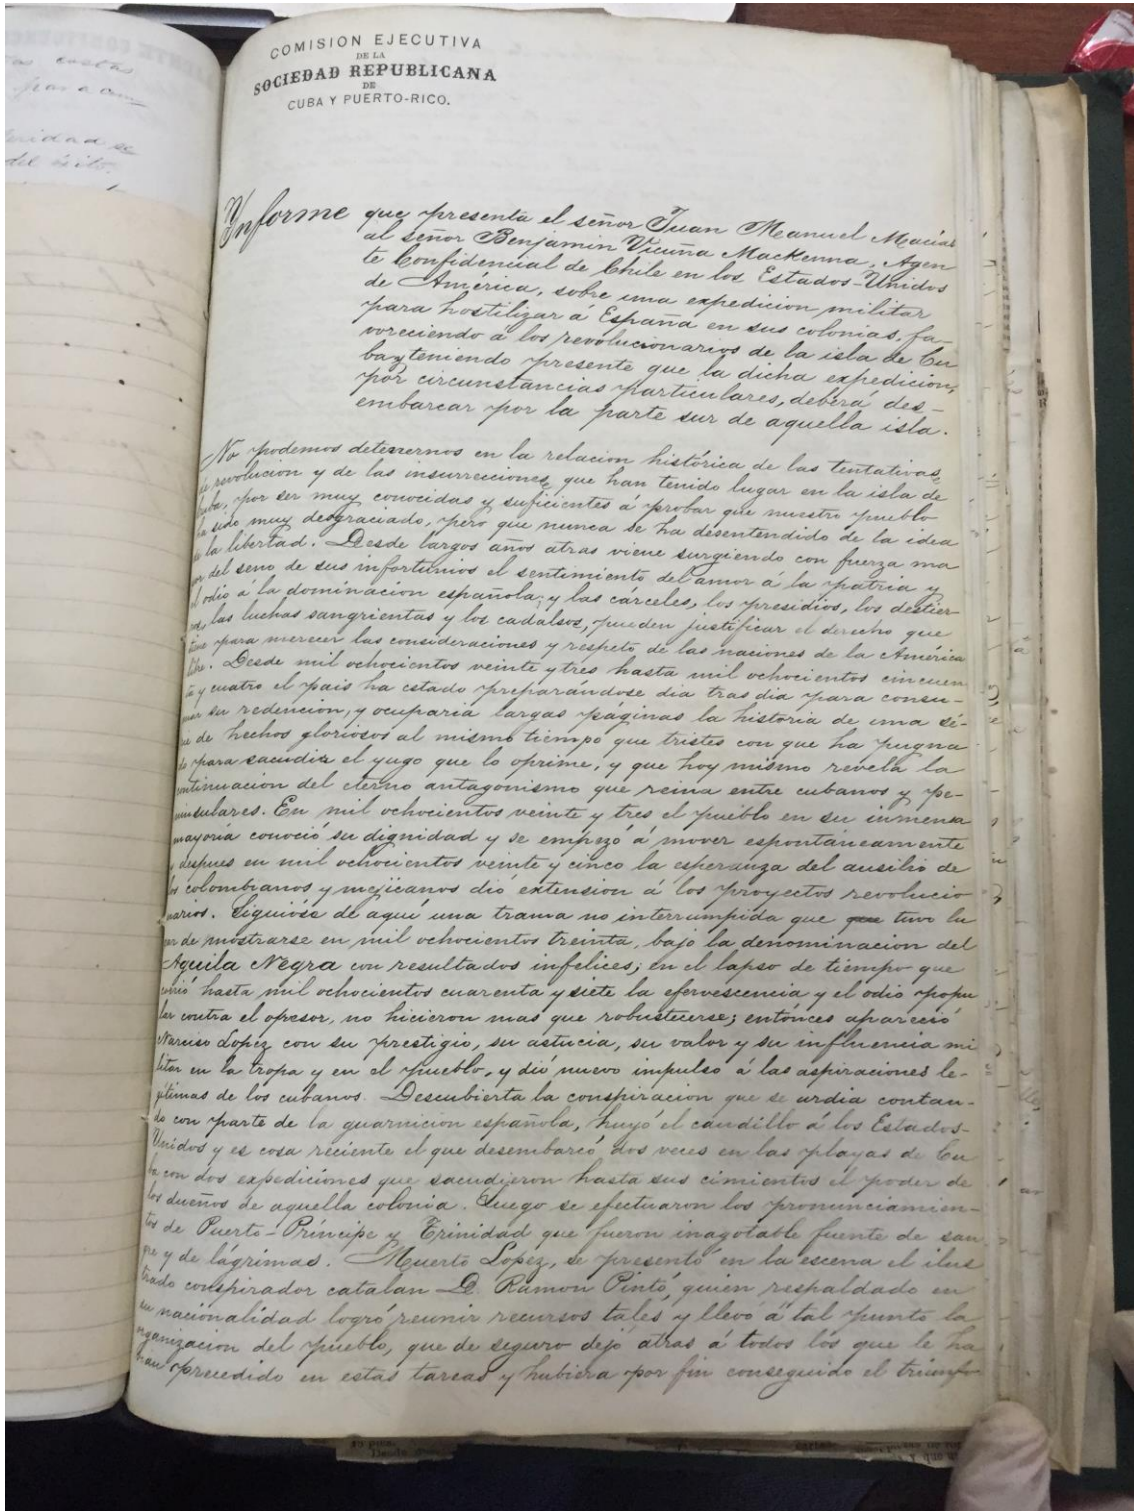 as costas
COMISION EJECUTIVA
DE LA
SOCIEDAD REPUBLICANA
DE
CUBA Y PUERTO-RICO.
Informe que presenta el señor Juan Manuel Macías
al señor Benjamin Vicuña Mackenna, Agen
te Confidencial de Chile en los Estados-Unidos
de América, sobre una expedicion militar
para hostilizar á España en sus colonias, fa-
voreciendo á los revolucionarios de la isla de Cu
ba, y teniendo presente que la dicha expedicion,
por circunstancias particulares, deberá des-
embarcar por la parte sur de aquella isla.
No podemos detenernos en la relacion histórica de las tentativas
de revolucion y de las insurrecciones que han tenido lugar en la isla de
Cuba, por ser muy conocidas y suficientes á probar que nuestro pueblo
ha sido muy desgraciado, pero que nunca se ha desentendido de la idea
de la libertad. Desde largos años atras viene surgiendo con fuerza ma
yor del seno de sus infortunios el sentimiento del amor á la patria y
el odio á la dominacion española; y las cárceles, los presidios, los destier-
ros, las luchas sangrientas y los cadalsos, pueden justificar el derecho que
tiene para merecer las consideraciones y respeto de las naciones de la América
libre. Desde mil ochocientos veinte y tres hasta mil ochocientos cincuen
ta y cuatro el pais ha estado preparándose dia tras dia para consu-
mar su redencion, y ocuparia largas páginas la historia de una sé-
rie de hechos gloriosos al mismo tiempo que tristes con que ha pugna
do para sacudir el yugo que lo oprime, y que hoy mismo revela la
continuacion del eterno antagonismo que reina entre cubanos y pe-
ninsulares. En mil ochocientos veinte y tres el pueblo en su inmensa
mayoria conoció su dignidad y se empezó á mover espontáneamente
y despues en mil ochocientos veinte y cinco la esperanza del ausilio de
los colombianos y mejicanos dió extension á los proyectos revolucio
narios. Siguióse de aquí una trama no interrumpida que que tuvo lu
gar de mostrarse en mil ochocientos treinta, bajo la denominacion del
Aguila Negra con resultados infelices; en el lapso de tiempo que
corrió hasta mil ochocientos cuarenta y siete la efervescencia y el odio popu
lar contra el opresor, no hicieron mas que robustecerse; entónces apareció
Narciso Lopez con su prestigio, su astucia, su valor y su influencia mi
litar en la tropa y en el pueblo, y dió nuevo impulso á las aspiraciones le-
gítimas de los cubanos. Descubierta la conspiracion que se urdia contan-
do con parte de la guarnicion española, huyó el caudillo á los Estados-
Unidos y es cosa reciente el que desembarcó dos veces en las playas de Cu
ba con dos expediciones que sacudieron hasta sus cimientos el poder de
los dueños de aquella colonia. Luego se efectuaron los pronunciamien-
tos de Puerto-Príncipe y Trinidad que fueron inagotable fuente de san
gre y de lágrimas. Muerto Lopez, se presentó en la escena el ilus
trado conspirador catalan D. Ramon Pintó, quien respaldado en
su nacionalidad logró reunir recursos tales y llevó á tal punto la
organizacion del pueblo, que de seguro dejó atras á todos los que le ha
bian precedido en estas tareas y hubiera por fin conseguido el triunfo